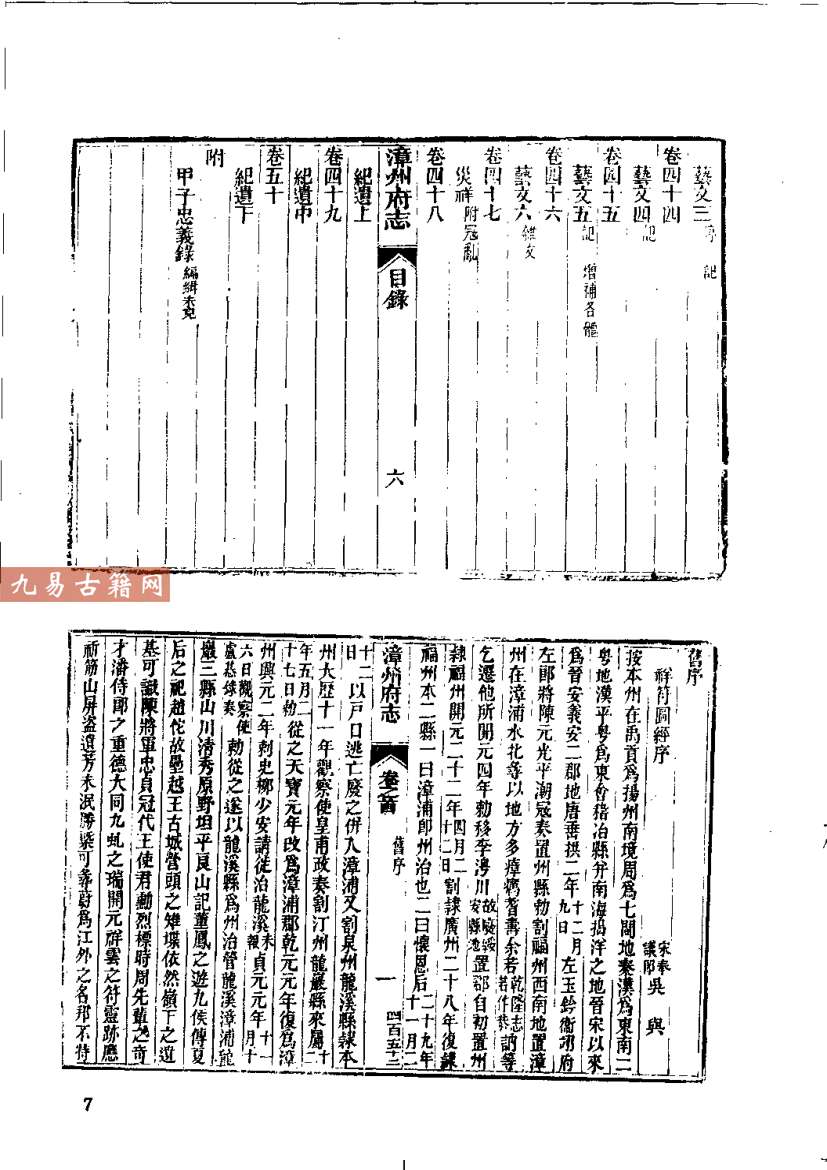 藝文三 序 記
卷四十四
藝文四 記
卷四十五
藝文五 記 增補各體
卷四十六
藝文六 雜文
卷四十七
災祥 附寇亂
卷四十八
漳州府志 目錄 六
紀遺上
卷四十九
紀遺中
卷五十
紀遺下
附
甲子忠義錄 編緝未竟
九易古籍网
舊序
祥符圖經序
宋奉議郎 吳 與
按本州在禹貢爲揚州南境周爲七閩地秦漢爲東南二
粤地漢平粤爲東會稽冶縣并南海揭洋之地晉宋以來
爲晉安義安二郡地唐垂拱二年十二月九日左玉鈐衛翊府
左郎將陳元光平潮寇奏置州縣勅割福州西南地置漳
州在漳浦水北等以地方多瘴癘耆壽余若乾隆志若作恭訥等
乞遷他所開元四年勅移李澳川故廢綏安縣地置郡自初置州
隸福州開元二十二年四月二十二日割隸廣州二十八年復隸
福州本二縣一曰漳浦卽州治也二曰懷恩后二十九年十一月二
漳州府志 卷之首 舊序 一 四百五十三
十二日以戶口逃亡廢之併入漳浦又割泉州龍溪縣隸本
州大歷十一年觀察使皇甫政奏割汀州龍巖縣來屬十二
年五月二十七日勅從之天寶元年改爲漳浦郡乾元元年復爲漳
州興元二年刺史柳少安請徙治龍溪未報貞元元年十一月十
六日觀察使盧惎錄奏勅從之遂以龍溪縣爲州治管龍溪漳浦龍
巖三縣山川清秀原野坦平良山記董鳳之遊九侯傳夏
后之祀趙佗故壘越王古城營頭之雉堞依然嶺下之遺
基可識陳將軍忠貞冠代王使君勳烈標時周先輩之奇
才潘侍郎之重德大同九虬之瑞開元群雲之符靈跡應
祈筋山屏盜遺芳未泯勝槩可尋蔚爲江外之名邦不特
7